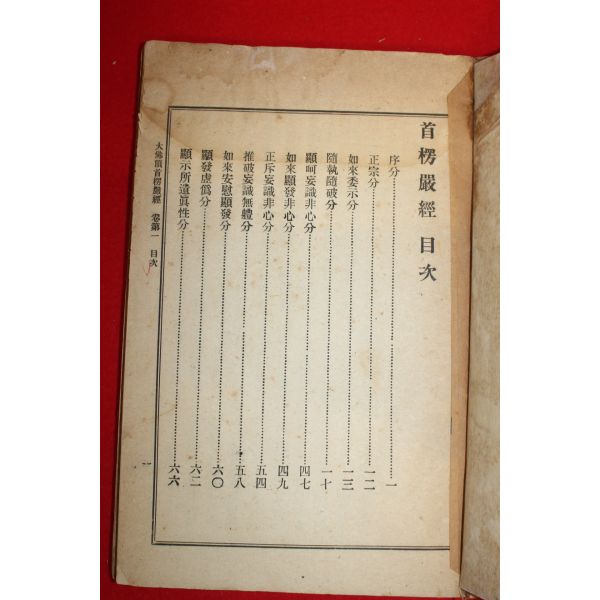 首楞嚴經 目次
序分 一
正宗分 一二
如來委示分 一三
隨執隨破分 一十
顯呵妄識非心分 四七
如來顯發非心分 四九
正斥妄識非心分 五四
推破妄識無體分 五八
如來安慰顯發分 六〇
顯發虛僞分 六二
顯示所遺眞性分 六六
大佛頂首楞嚴經 卷第一 目次